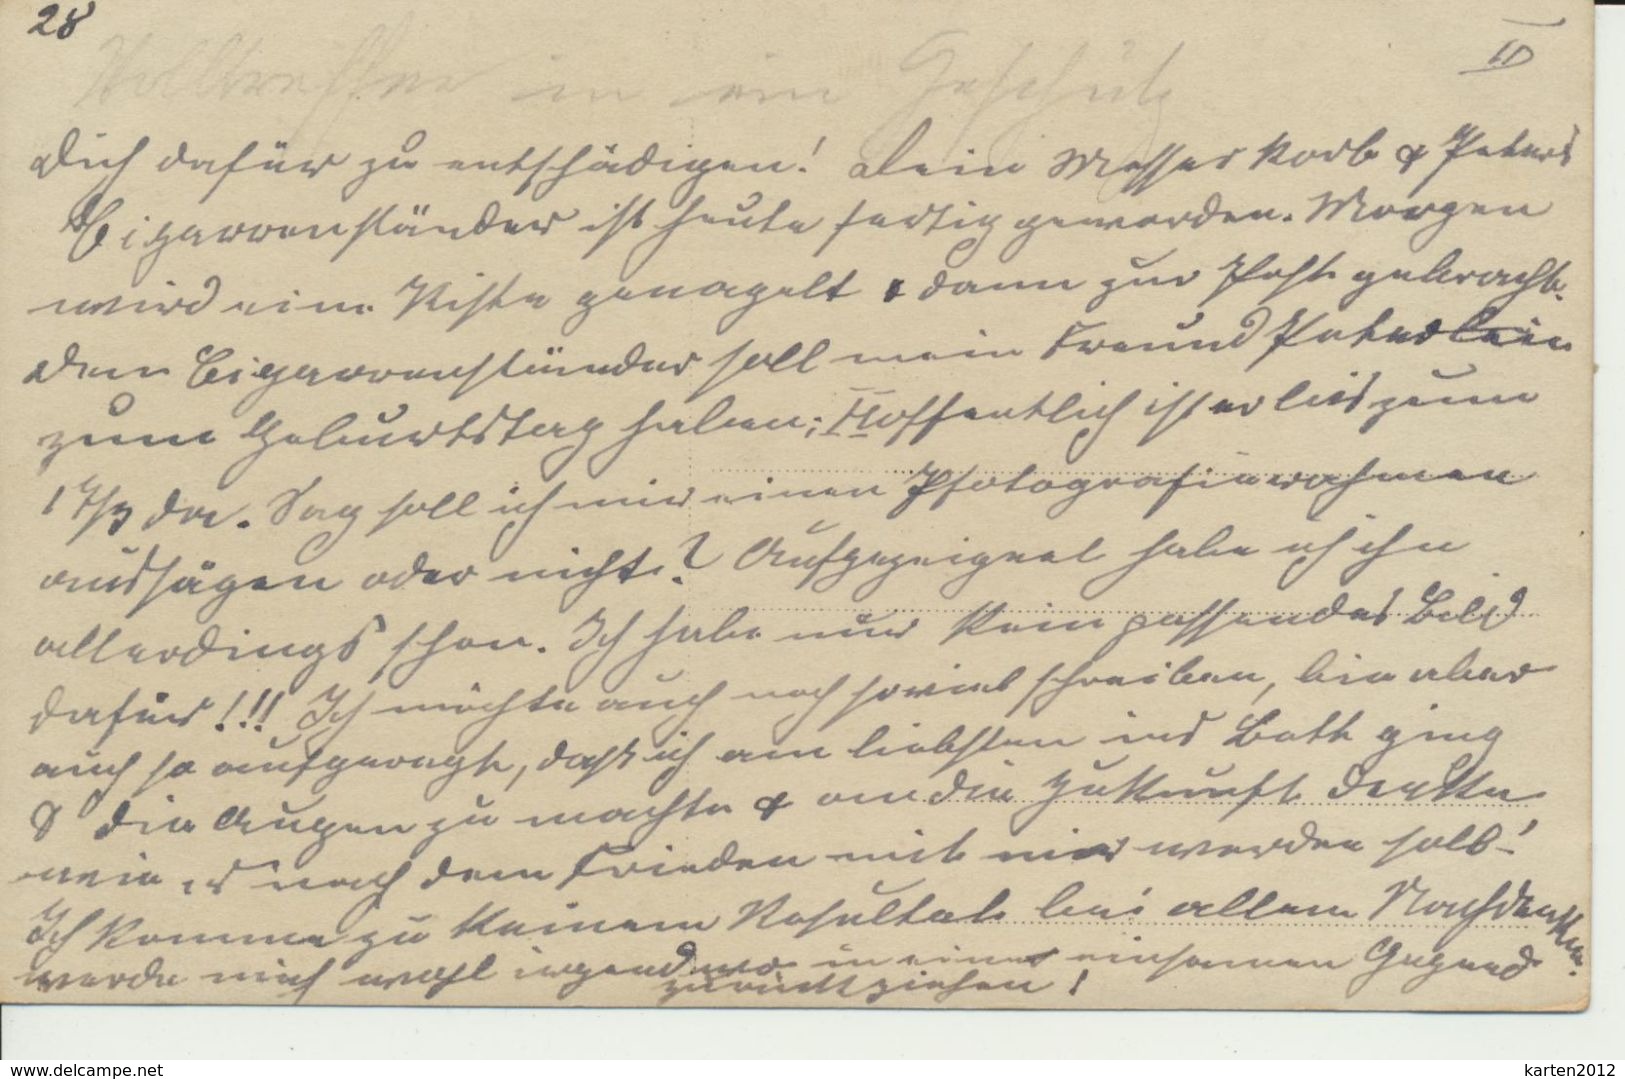 28
II
Volltreffer in ein Geschütz
Dich dafür zu entschädigen! Dein Messerkorb & Peters
Cigarrenständer ist heute fertig geworden. Morgen
wird eine Kiste genagelt & dann zur Post gebracht.
Den Cigarrenständer soll mein Freund Peterlein
zum Geburtstag haben; Hoffentlich ist er bis zum
17/3 da. Sag soll ich mir einen Photografierahmen
aussägen oder nicht? Aufgezeignet habe ich ihn
allerdings schon. Ich habe nur kein passendes Bild
dafür!!! Ich möchte auch noch soviel schreiben, bin aber
auch so aufgeregt, daß ich am liebsten ins Bett ging
& die Augen zu machte & an die Zukunft denke
wie es nach dem Frieden mit mir werden soll!
Ich komme zu keinem Resultat bei allem Nachdenken.
werde mich wohl irgendwo in einer einsamen Gegend
zurückziehen!
www.delcampe.net
karten2012